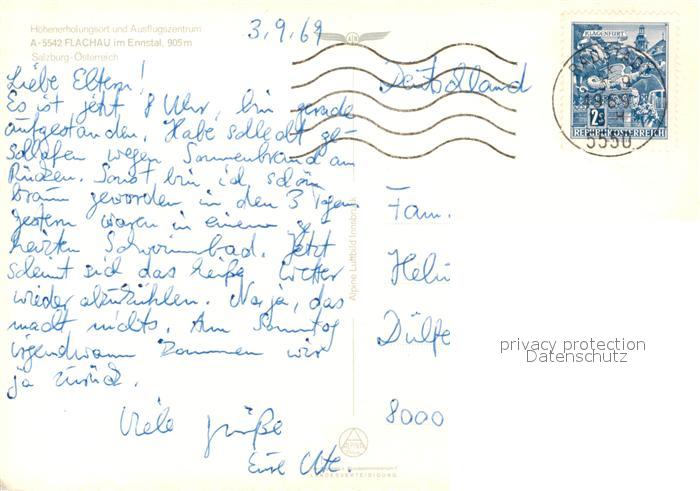 Höhenerholungsort und Ausflugszentrum
A-5542 FLACHAU im Ennstal, 905 m
Salzburg-Österreich
3.9.69
Liebe Eltern!
Es ist jetzt 8 Uhr, bin gerade
aufgestanden. Habe schlecht ge-
schlafen wegen Sonnenbrand am
Rücken. Sonst bin ich schön
braun geworden in den 3 Tagen
gestern waren in einem ge-
heizten Schwimmbad. Jetzt
scheint sich das heiße Wetter
wieder abzukühlen. Na ja, das
macht nichts. Am Sonntag
irgendwann kommen wir
ja zurück.
Viele Grüße
Eure Ute.
Alpine Luftbild Innsbruck
ALPINE
LANDESVERTEIDIGUNG
KLAGENFURT
2S
REPUBLIK ÖSTERREICH
1969
5550
Deutschland
Fam.
8000
privacy protection
Datenschutz